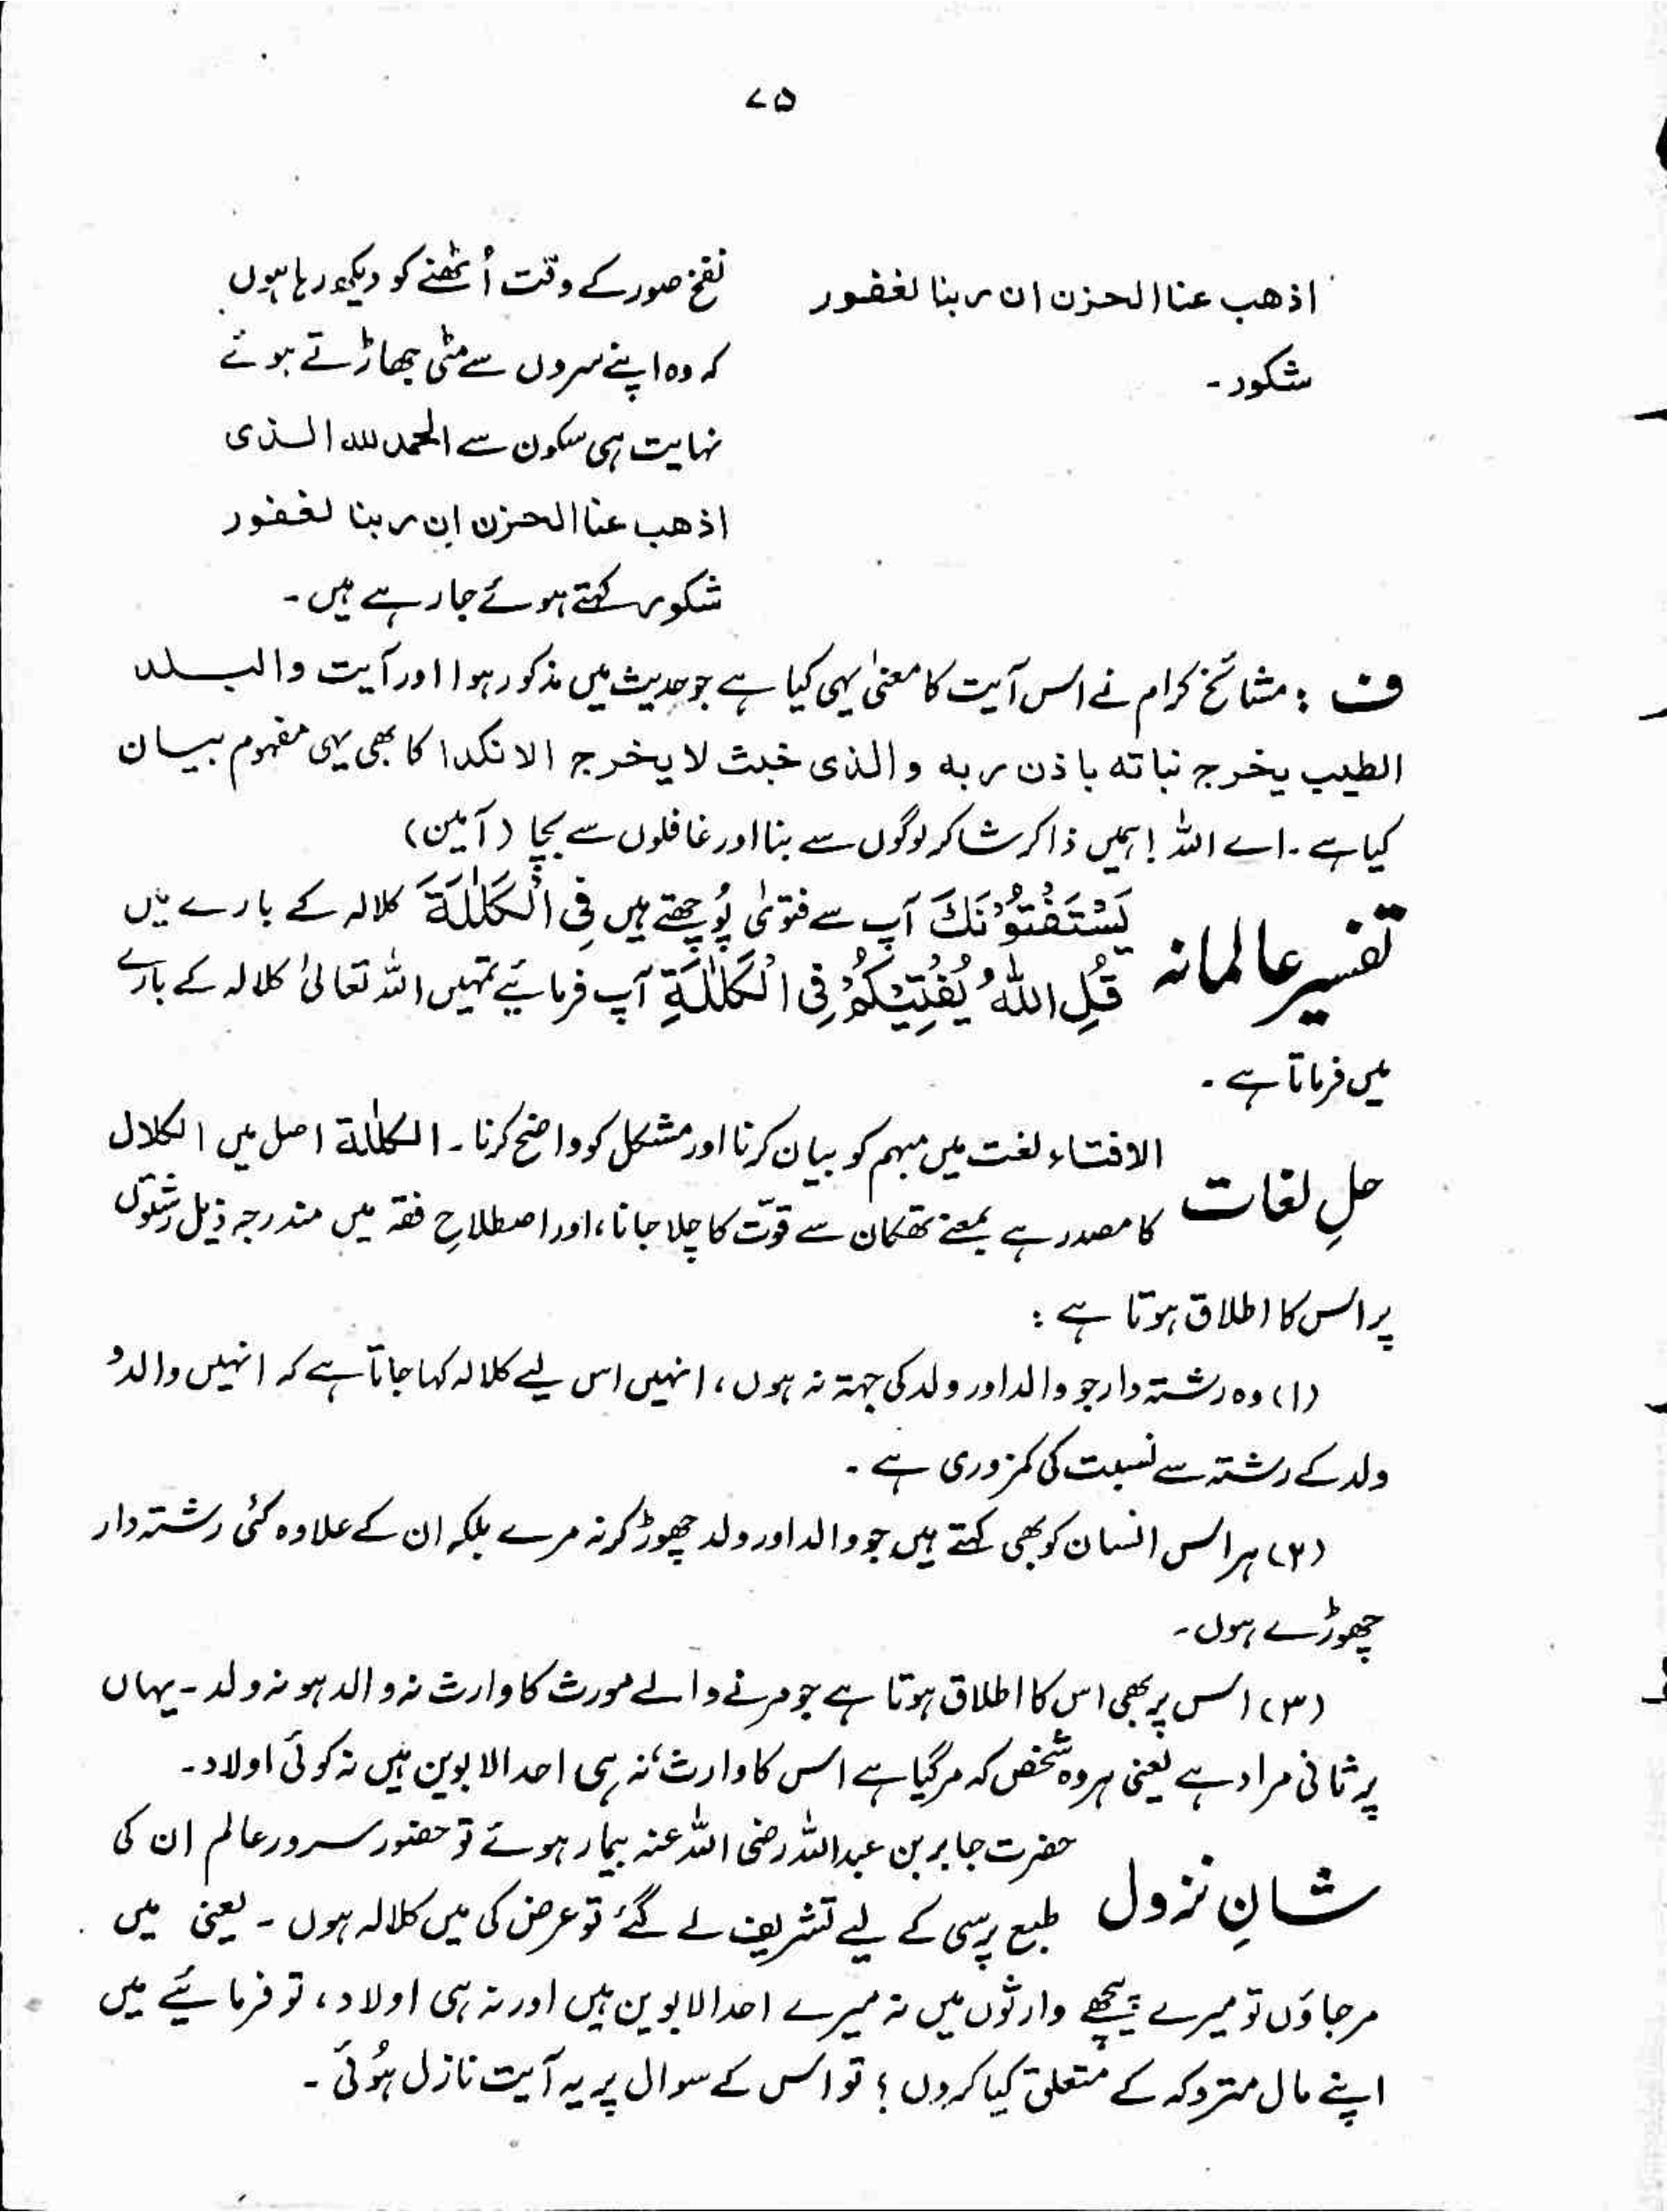 ۷۵
اذھب عنا الحزن ان ربنا لغفور
شکور۔
نفخ صور کے وقت اُٹھنے کو دیکھ رہا ہوں
کہ وہ اپنے سروں سے مٹی جھاڑتے ہوئے
نہایت ہی سکون سے الحمد للہ الذی
اذھب عنا الحزن ان ربنا لغفور
شکور کہتے ہوئے جا رہے ہیں۔
ف : مشائخ کرام نے اس آیت کا معنیٰ یہی کیا ہے جو حدیث میں مذکور ہوا اور آیت والبلد
الطیب یخرج نباتہ باذن ربہ والذی خبث لا یخرج الا نکدا کا بھی یہی مفہوم بیان
کیا ہے۔ اے اللہ ! ہمیں ذاکر شاکر لوگوں سے بنا اور غافلوں سے بچا (آمین)
تفسیر عالمانہ
یَسْتَفْتُوْنَكَ آپ سے فتویٰ پُوچھتے ہیں فِی الْکَلٰلَةَ کلالہ کے بارے میں
قُلِ اللّٰهُ یُفْتِیْکُمْ فِی الْکَلٰلَةِ آپ فرمائیے تمہیں اللہ تعالیٰ کلالہ کے بارے
میں فرماتا ہے۔
حلِ لغات
الافتاء لغت میں مبہم کو بیان کرنا اور مشکل کو واضح کرنا۔ الکلٰلة اصل میں الکلال
کا مصدر ہے بمعنے تھکان سے قوّت کا چلا جانا، اور اصطلاحِ فقہ میں مندرجہ ذیل رشتوں
پر اس کا اطلاق ہوتا ہے :
(۱) وہ رشتہ دار جو والد اور ولد کی جہتہ نہ ہوں، انہیں اس لیے کلالہ کہا جاتا ہے کہ انہیں والد و
ولد کے رشتہ سے نسبت کی کمزوری ہے۔
(۲) ہر اس انسان کو بھی کہتے ہیں جو والد اور ولد چھوڑ کر نہ مرے بلکہ ان کے علاوہ کئی رشتہ دار
چھوڑے ہوں۔
(۳) اس پر بھی اس کا اطلاق ہوتا ہے جو مرنے والے مورث کا وارث نہ والد ہو نہ ولد۔ یہاں
پر ثانی مراد ہے یعنی ہر وہ شخص کہ مر گیا ہے اس کا وارث، نہ ہی احد الابوین ہیں نہ کوئی اولاد۔
شانِ نزول
حضرت جابر بن عبداللہ رضی اللہ عنہ بیمار ہوئے تو حضور سرور عالم ان کی
طبع پرسی کے لیے تشریف لے گئے تو عرض کی میں کلالہ ہوں۔ یعنی میں
مر جاؤں تو میرے پیچھے وارثوں میں نہ میرے احد الابوین ہیں اور نہ ہی اولاد، تو فرمائیے میں
اپنے مال متروکہ کے متعلق کیا کروں ؟ تو اس کے سوال پر یہ آیت نازل ہُوئی۔